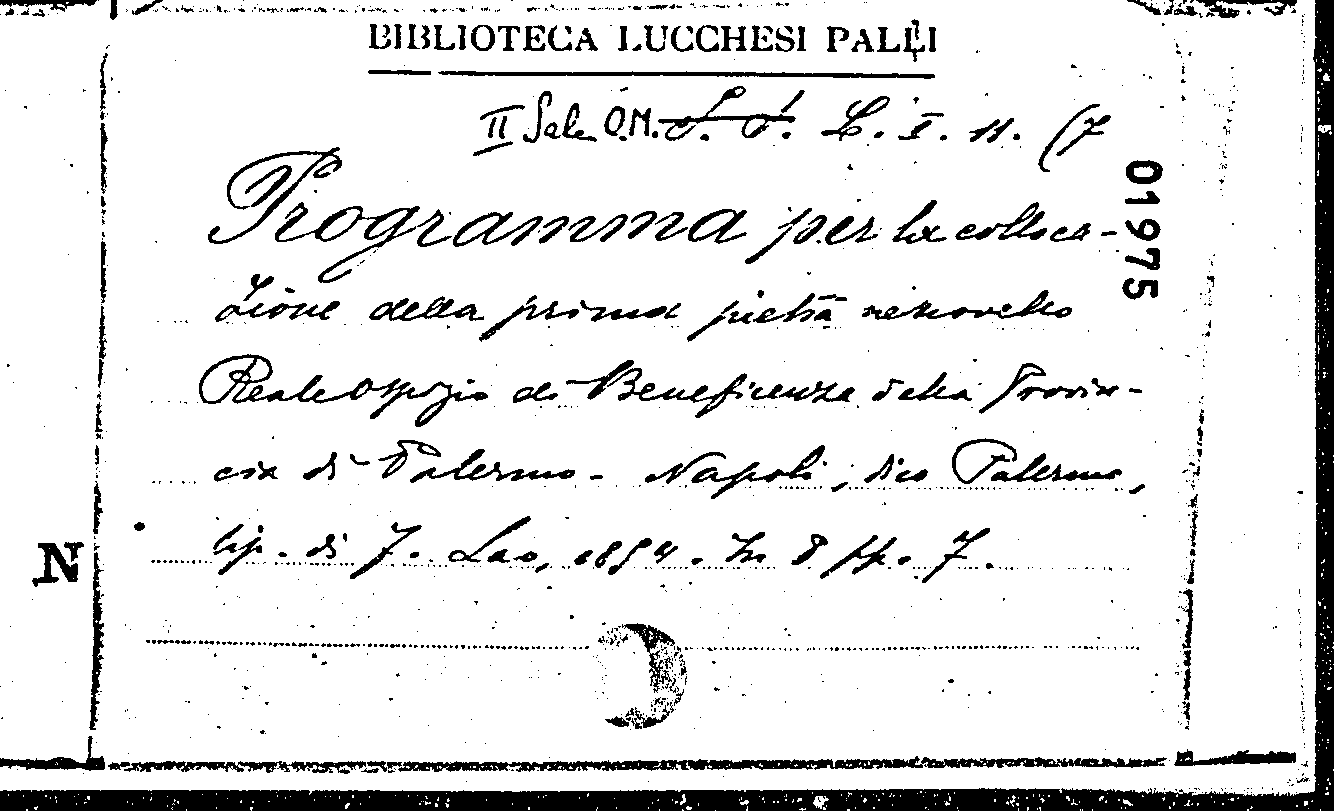 BIBLIOTECA LUCCHESI PALLI
II Sala O.M. L. I. 11. (7
Programma per la colloca-
zione della prima pietra nel novello
Reale Ospizio di Beneficenza della Provin-
cia di Palermo - Napoli, dico Palermo,
tip. di F. Lao, 1854. In 8 pp. 7.
01975
N